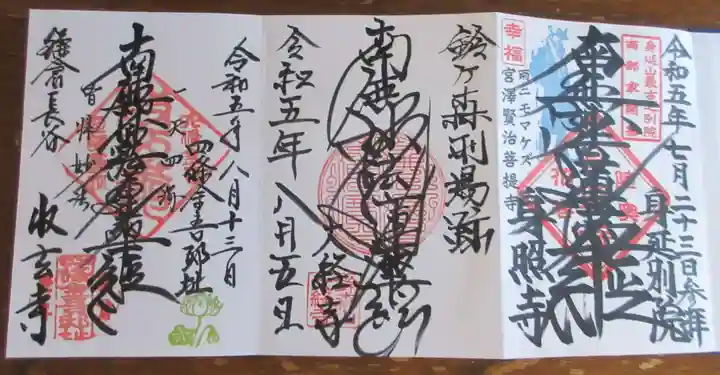 令和五年七月二十三日参拝
身延別院
身延山最古別院
南部家開基
南無妙法蓮華経
幸福
雨ニモマケズ
宮澤賢治菩提寺
身照寺
鈴ヶ森刑場跡
南無妙法蓮華経
大経寺
令和五年八月五日
令和五年八月十三日
四條金吾邸址
一天四海
南無妙法蓮華経
皆帰妙法
鎌倉長谷
収玄寺